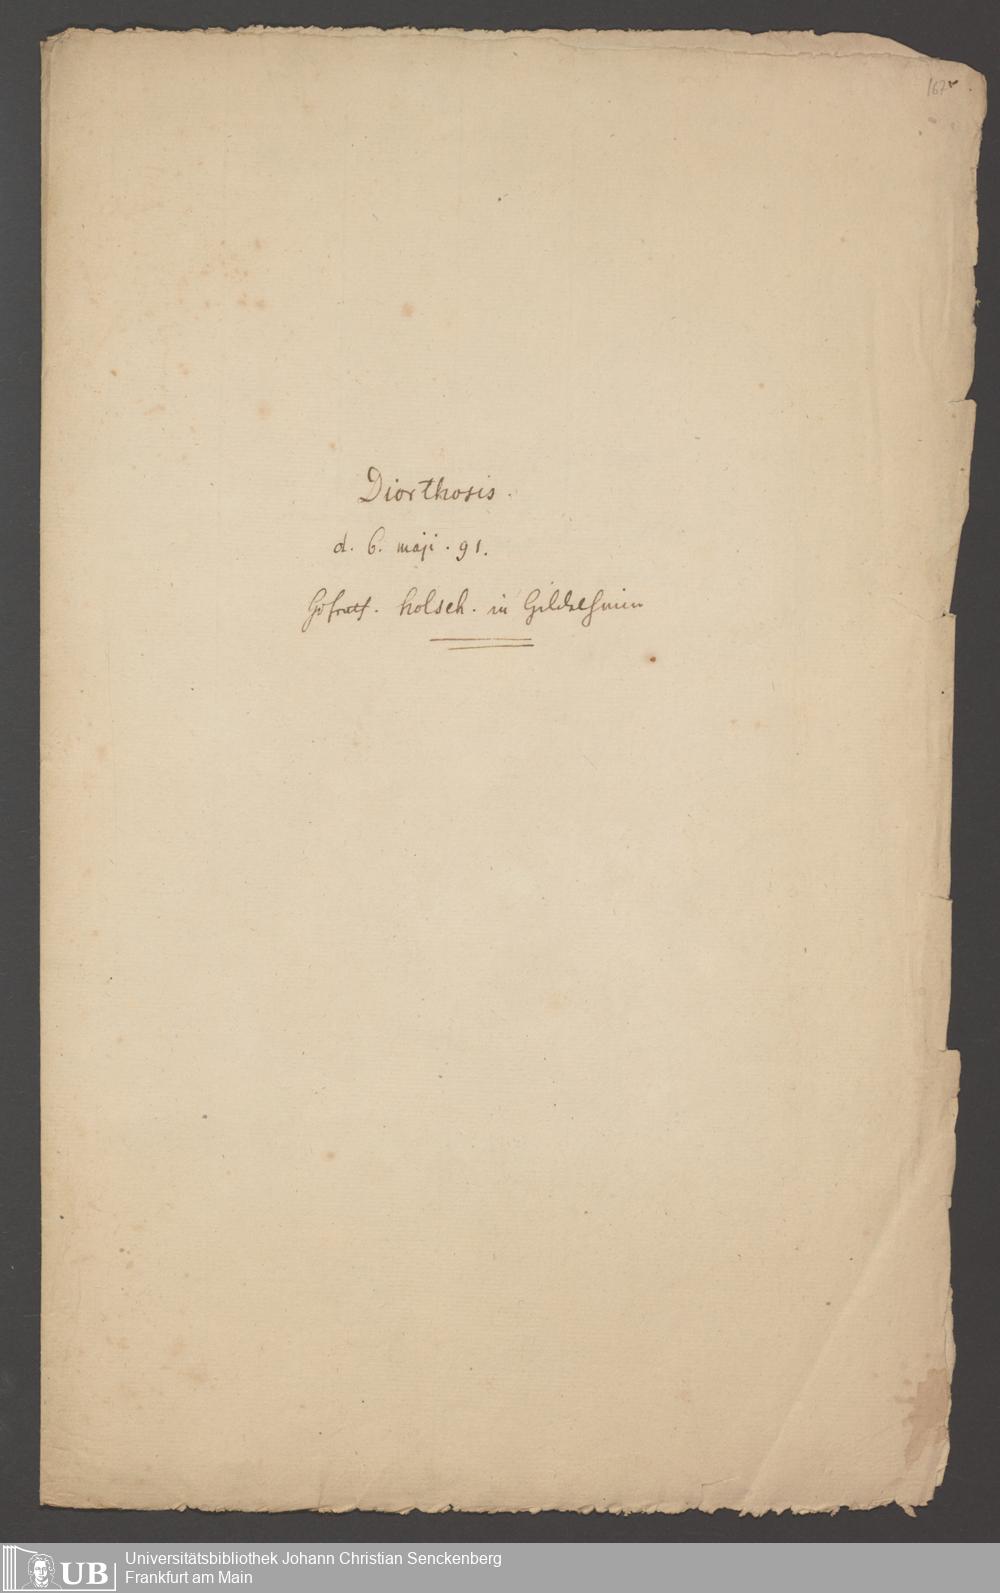 167r
Diorthosis.
d. 6. maji. 91.
Hofrath. Kolsch. in Hildesheim
Universitätsbibliothek Johann Christian Senckenberg
Frankfurt am Main
UB